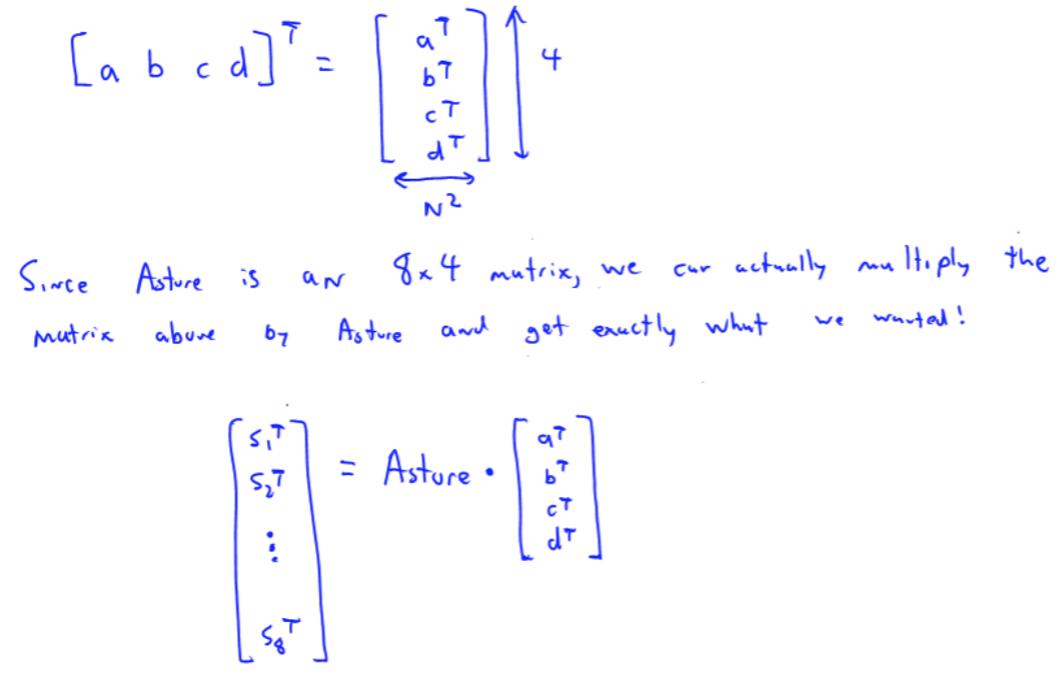 [a b c d]ᵀ = [aᵀ bᵀ cᵀ dᵀ] 4
N²
Since Astore is an 8x4 matrix, we can actually multiply the
matrix above by Astore and get exactly what we wanted!
[s₁ᵀ s₂ᵀ ⋮ s₈ᵀ] = Astore · [aᵀ bᵀ cᵀ dᵀ]